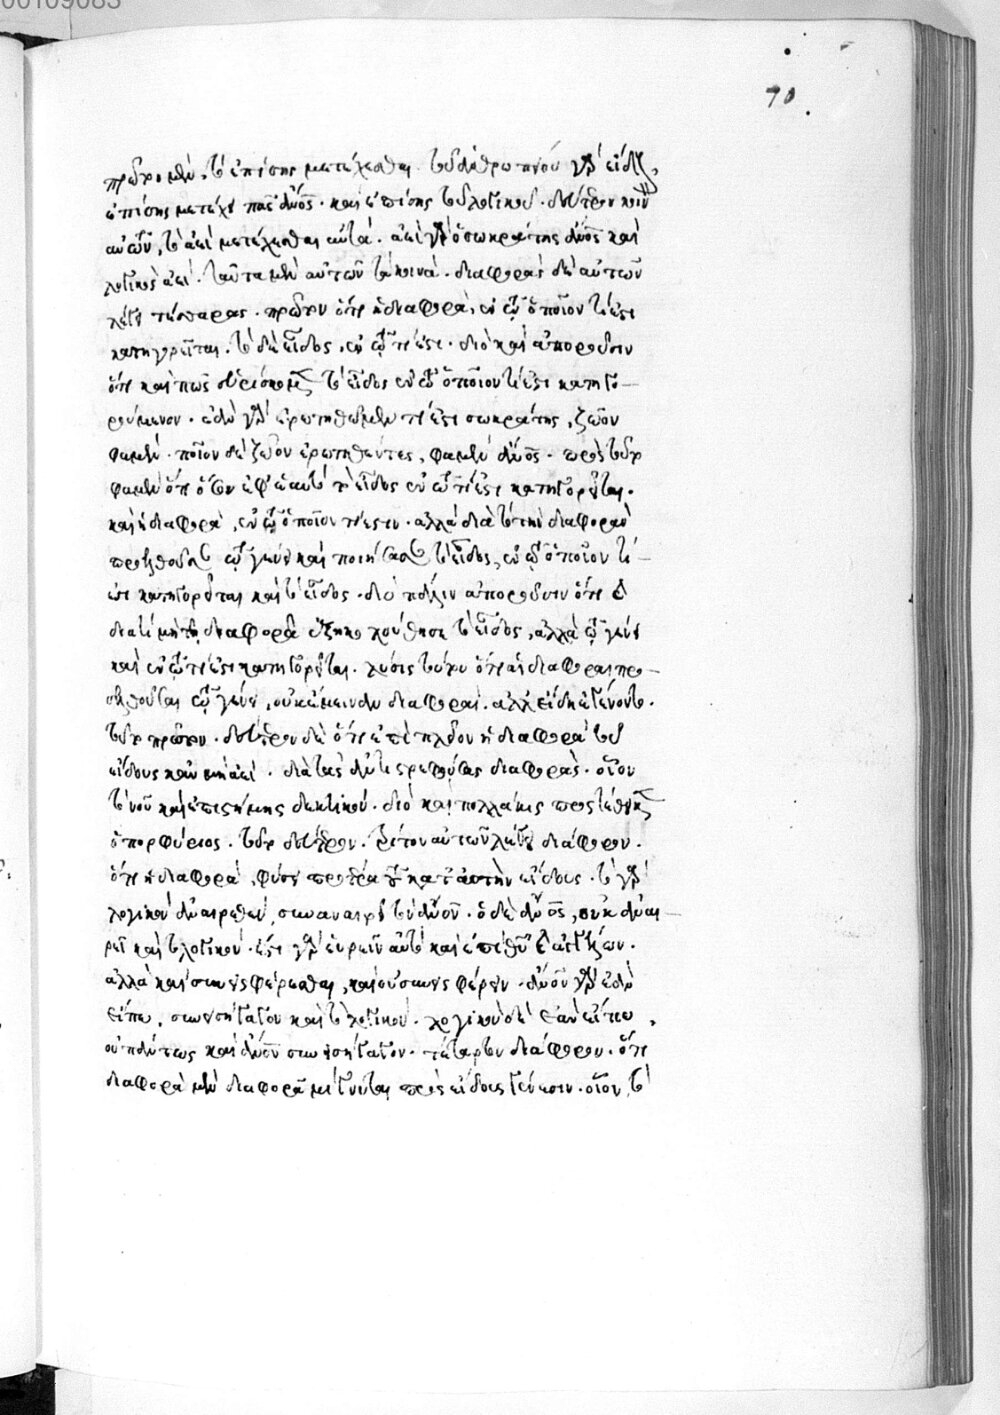 00109083
70
πρῶτον μὲν, τὸ ἐπίσης μετέχεσθαι. τοῦ ἀνθρωπίνου γὰρ εἴδους,
ἐπίσης μετέχει πᾶς ἄνος. καὶ ἐπίσης τοῦ λογικοῦ. δεύτερον κοινὸν
αὐτῶν, τὸ ἀεὶ μετέχεσθαι αὐτά. ἀεὶ γὰρ ὁ σωκράτης ἄνος καὶ
λογικὸς ἀεί. ταῦτα μὲν αὐτῶν τὰ κοινά. διαφορὰς δὲ αὐτῶν
λέγει τέσσαρας. πρῶτον ὅτι ἡ διαφορὰ, ἐν τῷ ὁποῖον τί ἐστι
κατηγορεῖται. τὸ δὲ εἶδος, ἐν τῷ τί ἐστι. διὸ καὶ ἀποροῦσιν
ὅτι καὶ πῶς εὑρίσκομεν τὸ εἶδος ἐν τῷ ὁποῖον τί ἐστι κατηγο-
ρούμενον. ἐὰν γὰρ ἐρωτηθῶμεν τί ἐστι σωκράτης, ζῶον
φαμέν. ποῖον δὲ ζῶον ἐρωτηθέντες, φαμὲν ἄνος. πρὸς τοῦτο
φαμὲν ὅτι ὅσον ἐφ' ἑαυτὸ τὸ εἶδος ἐν τῷ τί ἐστι κατηγορεῖται.
καὶ ἡ διαφορὰ, ἐν τῷ ὁποῖον τί ἐστιν. ἀλλὰ διὰ τὸ τὴν διαφορὰν
προσελθοῦσαν τῷ γένει καὶ ποιήσασαν τὸ εἶδος, ἐν τῷ ὁποῖον τί
ἐστι κατηγορεῖται καὶ τὸ εἶδος. διὸ πάλιν ἀποροῦσιν ὅτι
διατί μὴ τῇ διαφορᾷ ἐξηκολούθησε τὸ εἶδος, ἀλλὰ τῷ γένει
καὶ ἐν τῷ τί ἐστι κατηγορεῖται. λύσις τούτου ὅτι αἱ διαφοραὶ προ-
σελθοῦσαι τῷ γένει, οὐκ ἔμειναν διαφοραὶ. ἀλλ' εἴδη ἐγένοντο.
τοῦτο πρῶτον. δεύτερον δὲ ὅτι ἐπὶ πλέον ἡ διαφορὰ τοῦ
εἴδους κἂν μὴ ἀεὶ. διὰ τὰς ἀντιστρεφούσας διαφοράς. οἷον
τὸ νοῦ καὶ ἐπιστήμης δεκτικόν. διὸ καὶ πολλάκις προστίθησι
ὁ πορφύριος. τοῦτο δεύτερον. τρίτον αὐτῶν λέγει διάφορον.
ὅτι ἡ διαφορὰ, φύσει προτέρα τοῦ κατ' αὐτὴν εἴδους. τὸ γὰρ
λογικὸν ἀναιρεθὲν, συναναιρεῖ τὸν ἄνον. ὁ δὲ ἄνος, οὐκ ἀναι-
ρεῖ καὶ τὸ λογικόν. ἔστι γὰρ εὑρεῖν αὐτὸ καὶ ἐπὶ θυ καὶ ἀγγέλων.
ἀλλὰ καὶ συνεισφέρεσθαι, καὶ οὐ συνεισφέρειν. ἄνον γὰρ ἐὰν
εἴπω, συνεισήγαγον καὶ τὸ λογικόν. λογικὸν δὲ ἐὰν εἴπω,
οὐ πάντως καὶ ἄνον συνεισήγαγον. τέταρτον διάφορον. ὅτι
διαφορὰ μὲν διαφορᾷ μίγνυται πρὸς εἴδους γένεσιν. οἷον, τὸ